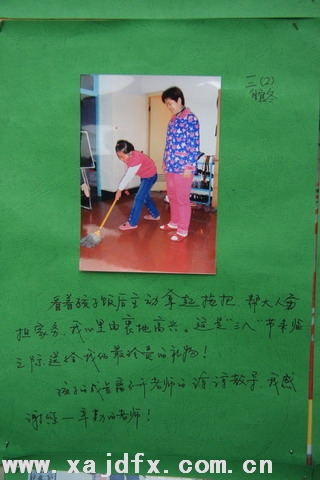 三(2)
看着孩子饭后主动拿起拖把,帮大人分
担家务,我心里由衷地高兴。这是"三八"节来临
之际送给我的最珍贵的礼物!
孩子的成长离不开老师的谆谆教导,我感
谢您—辛勤的老师!
www.xajdfx.com.cn